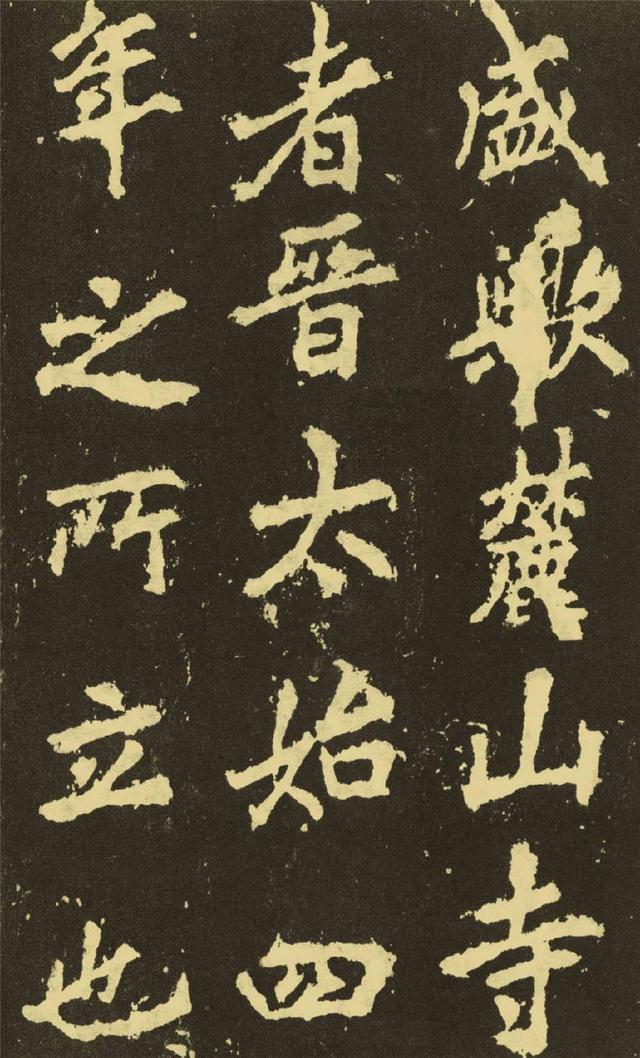 盛歟麓山寺
者晋太始四
年之所立也